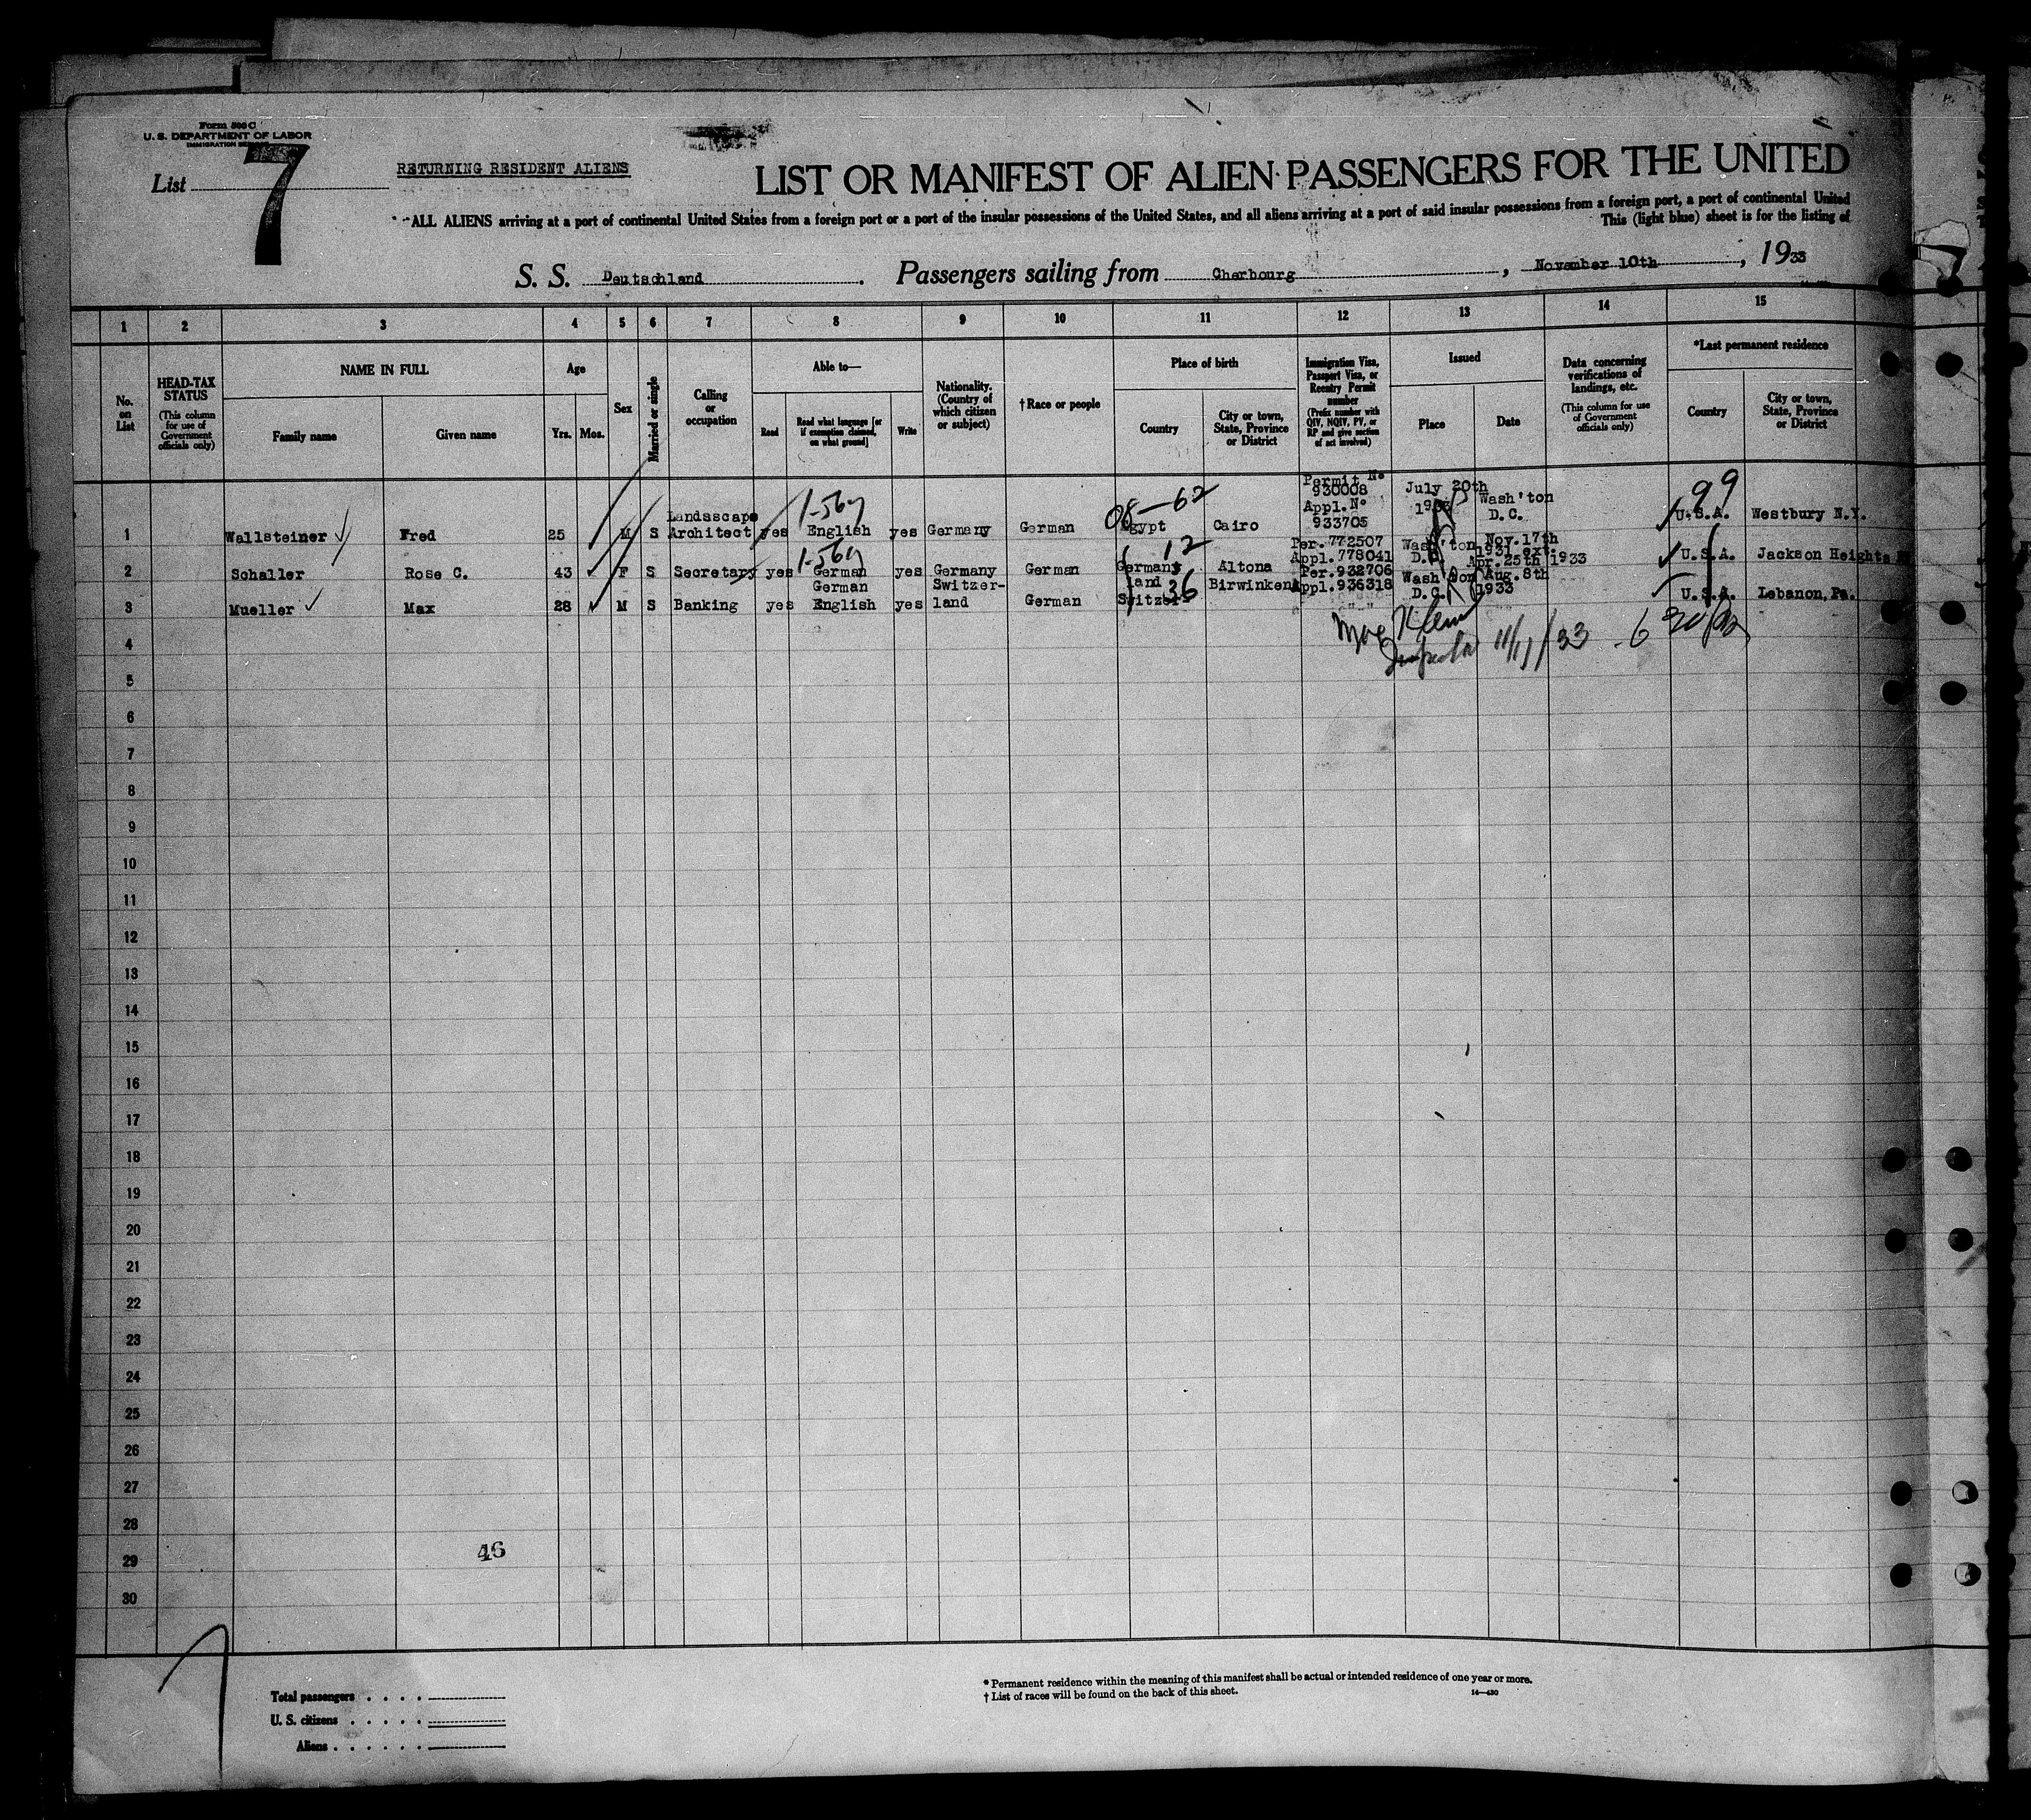 Form 500 C
U. S. DEPARTMENT OF LABOR
IMMIGRATION
List 7
RETURNING RESIDENT ALIENS
LIST OR MANIFEST OF ALIEN PASSENGERS FOR THE UNITED
ALL ALIENS arriving at a port of continental United States from a foreign port or a port of the insular possessions of the United States, and all aliens arriving at a port of said insular possessions from a foreign port, a port of continental United
This (light blue) sheet is for the listing of
S. S. Deutschland. Passengers sailing from Cherbourg, November 10th, 1933
1 2 3 4 5 6 7 8 9 10 11 12 13 14 15
No. on List
HEAD-TAX STATUS
(This column for use of Government officials only)
NAME IN FULL
Family name
Given name
Age
Yrs. Mos.
Sex
Married or single
Calling or occupation
Able to—
Read
Read what language [or if exemption claimed, on what ground]
Write
Nationality. (Country of which citizen or subject)
†Race or people
Place of birth
Country
City or town, State, Province or District
Immigration Visa, Passport Visa, or Reentry Permit number
(Prefix number with QIV, NQIV, PV, or RP and give section of act involved)
Issued
Place
Date
Data concerning verifications of landings, etc.
(This column for use of Government officials only)
*Last permanent residence
Country
City or town, State, Province or District
99
1-56y
08—62
1 Wallsteiner Fred 25 M S Landsscape Architect yes English yes Germany German Egypt Cairo Permit No 930008 Appl. No 933705 July 20th 1933 Wash'ton D.C. U.S.A. Westbury N.Y.
1-56y
12
2 Schaller Rose C. 43 F S Secretary yes German yes Germany German Germany Altona Per. 772507 Appl. 778041 Wash'ton D.C. Nov. 17th 1931 ext. Apr. 25th 1933 U.S.A. Jackson Heights
36
3 Mueller Max 28 M S Banking yes German English yes Switzer- land German Switzer- land Birwinken Per. 932706 Appl. 936318 Wash'ton D.C. Aug. 8th 1933 U.S.A. Lebanon, Pa.
Klein
11/17/33
4
5
6
7
8
9
10
11
12
13
14
15
16
17
18
19
20
21
22
23
24
25
26
27
28
29
30
46
Total passengers
U. S. citizens
Aliens
* Permanent residence within the meaning of this manifest shall be actual or intended residence of one year or more.
† List of races will be found on the back of this sheet.
14—430